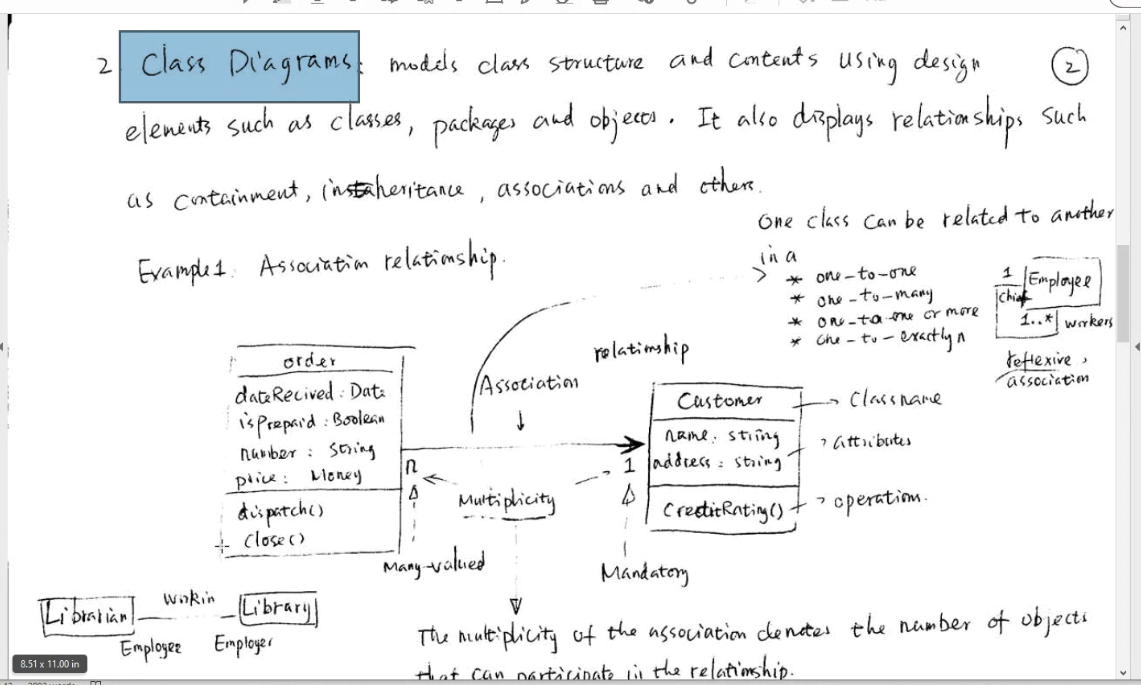 2. Class Diagrams: models class structure and contents using design
2
elements such as classes, packages and objects. It also displays relationships such
as containment, inheritance, associations and others.
One class can be related to another
in a
Example 1: Association relationship.
* one-to-one
* one-to-many
* one-to-one or more
* one-to-exactly n
1 Employee
Chief
1..* workers
reflexive
association
relationship
Association
order
dateRecived: Date
isPrepaid: Boolean
number: String
price: Money
dispatch()
close()
Customer
name: string
address: string
CreditRating()
Class name
attributes
operation.
n
1
Multiplicity
Many-valued
Mandatory
Librarian
workin
Library
Employee
Employer
The multiplicity of the association denotes the number of objects
that can participate in the relationship.
8.51 x 11.00 in